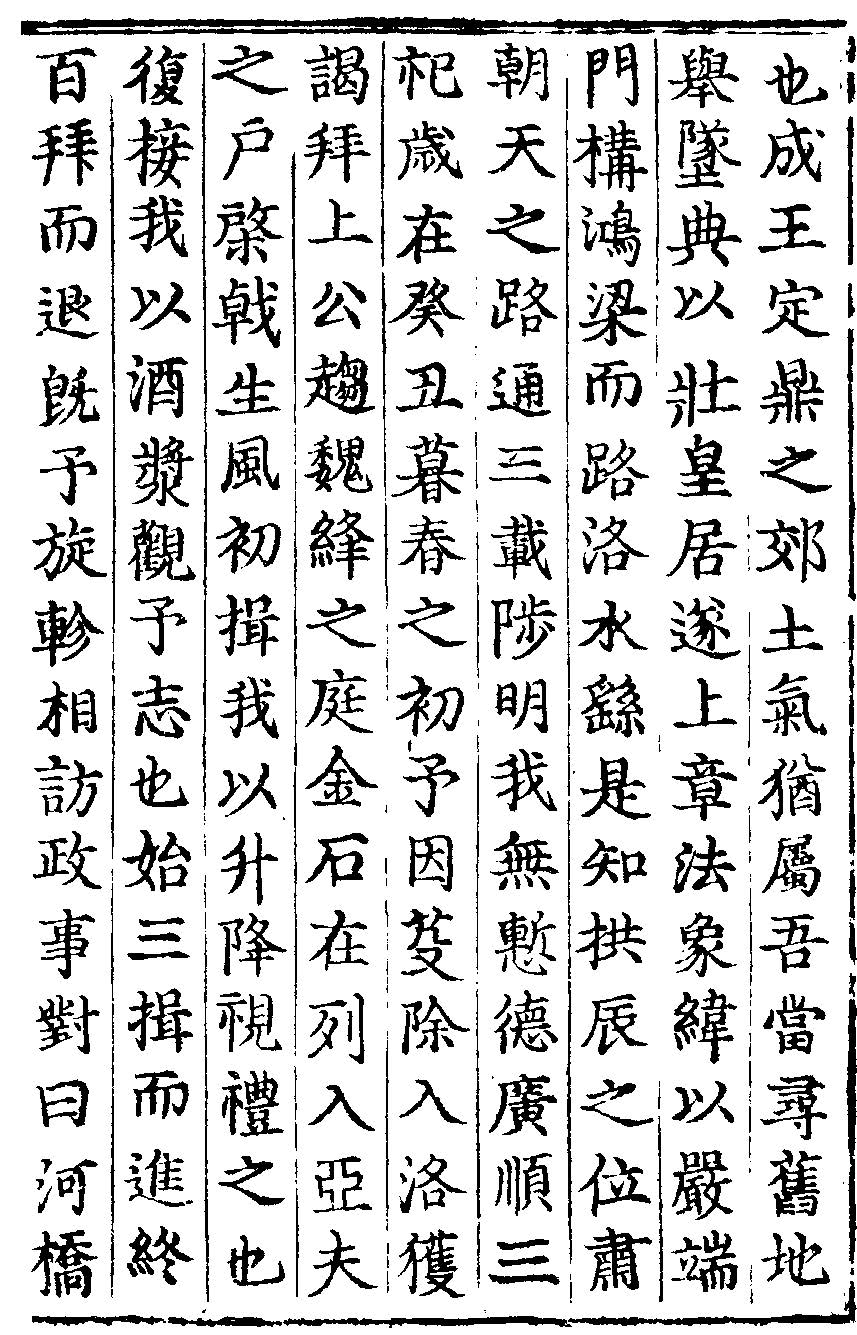 也成王定鼎之郊土氣猶屬吾當尋舊地
舉墜典以壯皇居遂上章法象緯以嚴端
門構鴻梁而路洛水繇是知拱辰之位肅
朝天之路通三載陟明我無慙德廣順三
祀歲在癸丑暮春之初予因芟除入洛獲
謁拜上公趨魏絳之庭金石在列入亞夫
之戶棨戟生風初揖我以升降視禮之也
復接我以酒漿觀予志也始三揖而進終
百拜而退旣予旋軫相訪政事對曰河橋